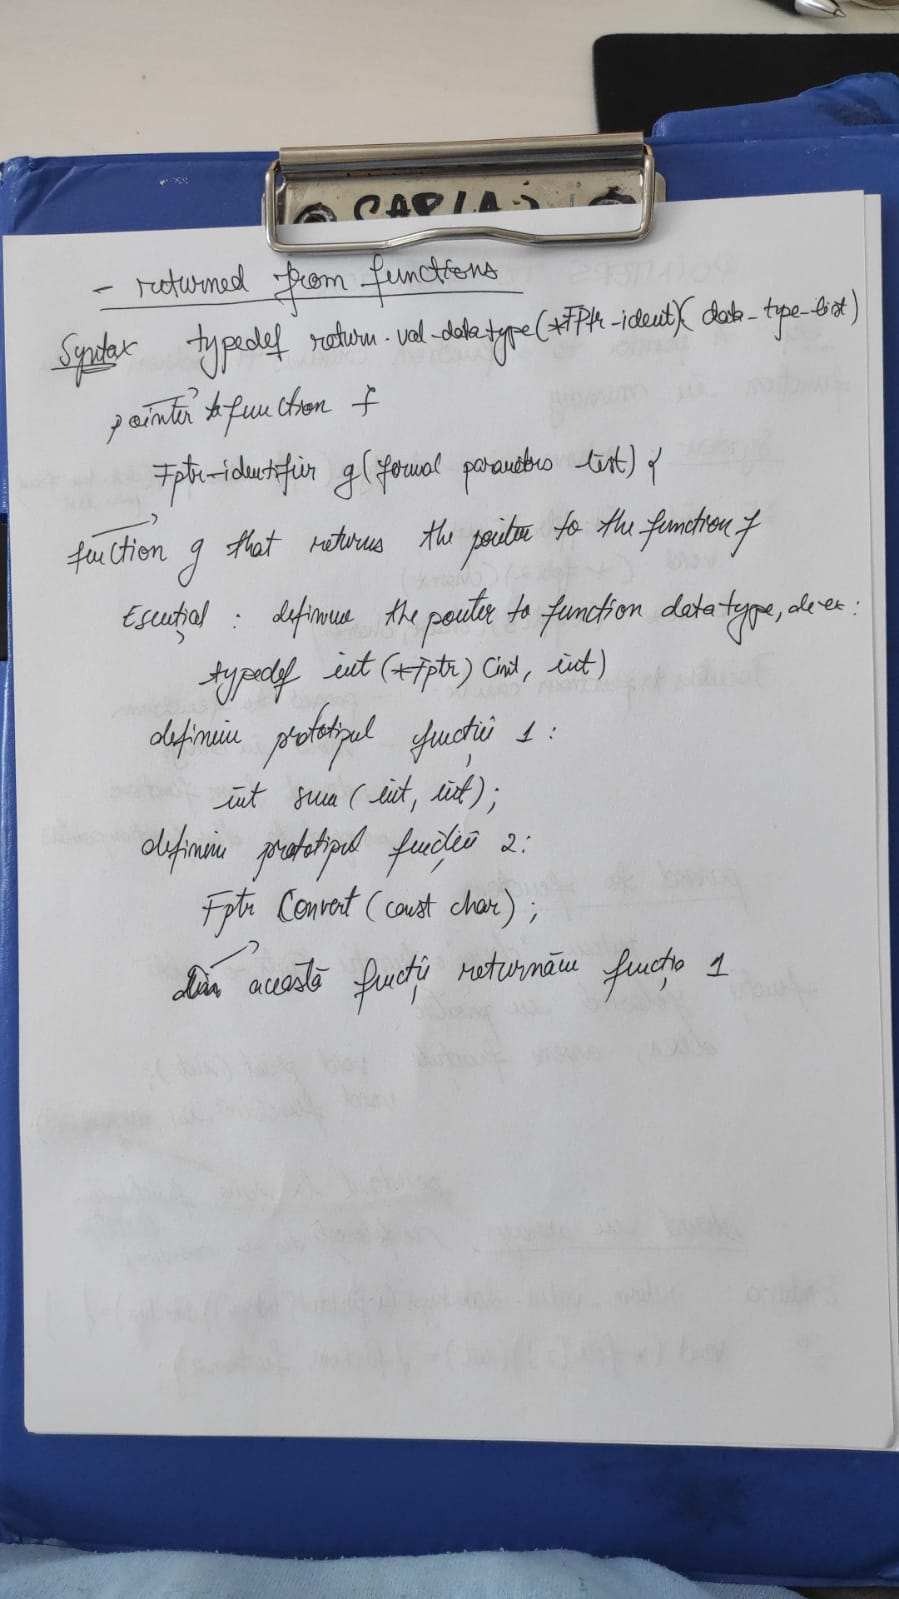 - returned from functions
Syntax typedef return-val-datatype(*FPtr-ident)(data-type-list)
pointer to function f
Fptr-identifier g(formal parameters list) {
function g that returns the pointer to the function f
Esențial : definim the pointer to function datatype, de ex:
typedef int (*Fptr) (int, int)
definim prototipul funcției 1 :
int suma (int, int);
definim prototipul funcției 2:
Fptr Convert (const char);
din această funcții returnăm funcția 1